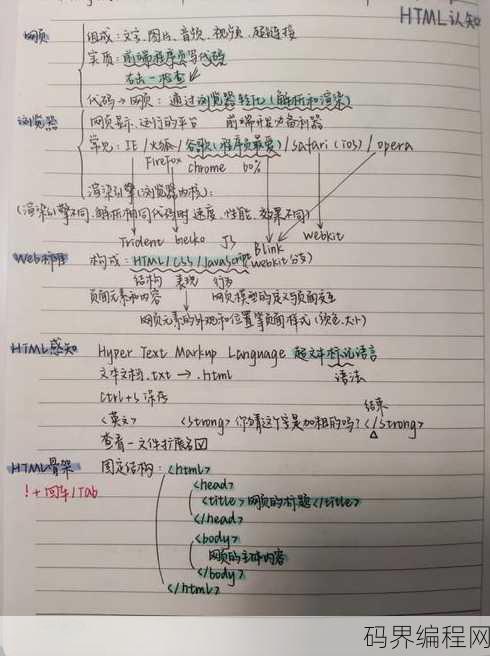 HTML认知
网页 组成:文字、图片、音频、视频、超链接
实质:前端程序员写代码
右击→检查
代码→网页:通过浏览器转化(解析和渲染)
浏览器 网页显示、运行的平台 前端开发必备利器
常见:IE/火狐/谷歌(程序员最爱)/safari(ios)/opera
Firefox chrome 60%
渲染引擎(浏览器内核):
(渲染引擎不同,解析相同代码时速度、性能、效果不同)
Trident Gecko JS Blink Webkit
Web标准 构成:HTML/CSS/JavaScript webkit分支)
结构 表现 行为
页面元素和内容 网页模型的定义与页面交互
网页元素的外观和位置等页面样式(颜色、大小)
HTML感知 Hyper Text Markup Language 超文本标记语言
文本文档.txt → .html 语法
ctrl+s 保存 结束
<英文> <strong>你看这个字是加粗的吗?</strong>
查看→文件扩展名☑
HTML骨架 固定结构:<html>
!+回车/Tab <head>
<title>网页的标题</title>
</head>
<body>
网页的主体内容
</body>
</html>
码界编程网